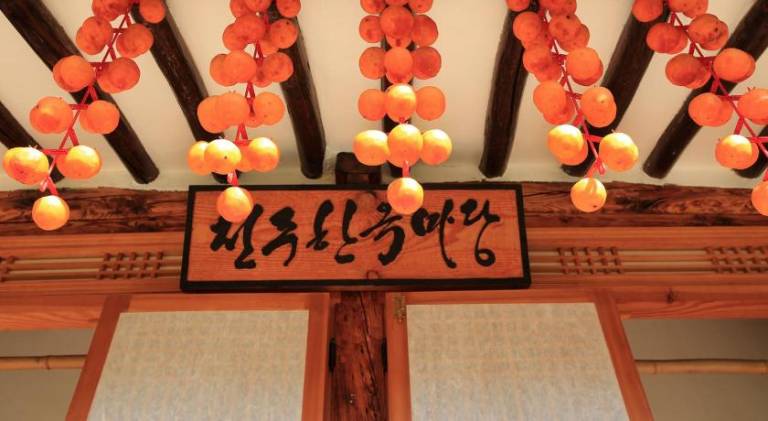 전주한옥마당